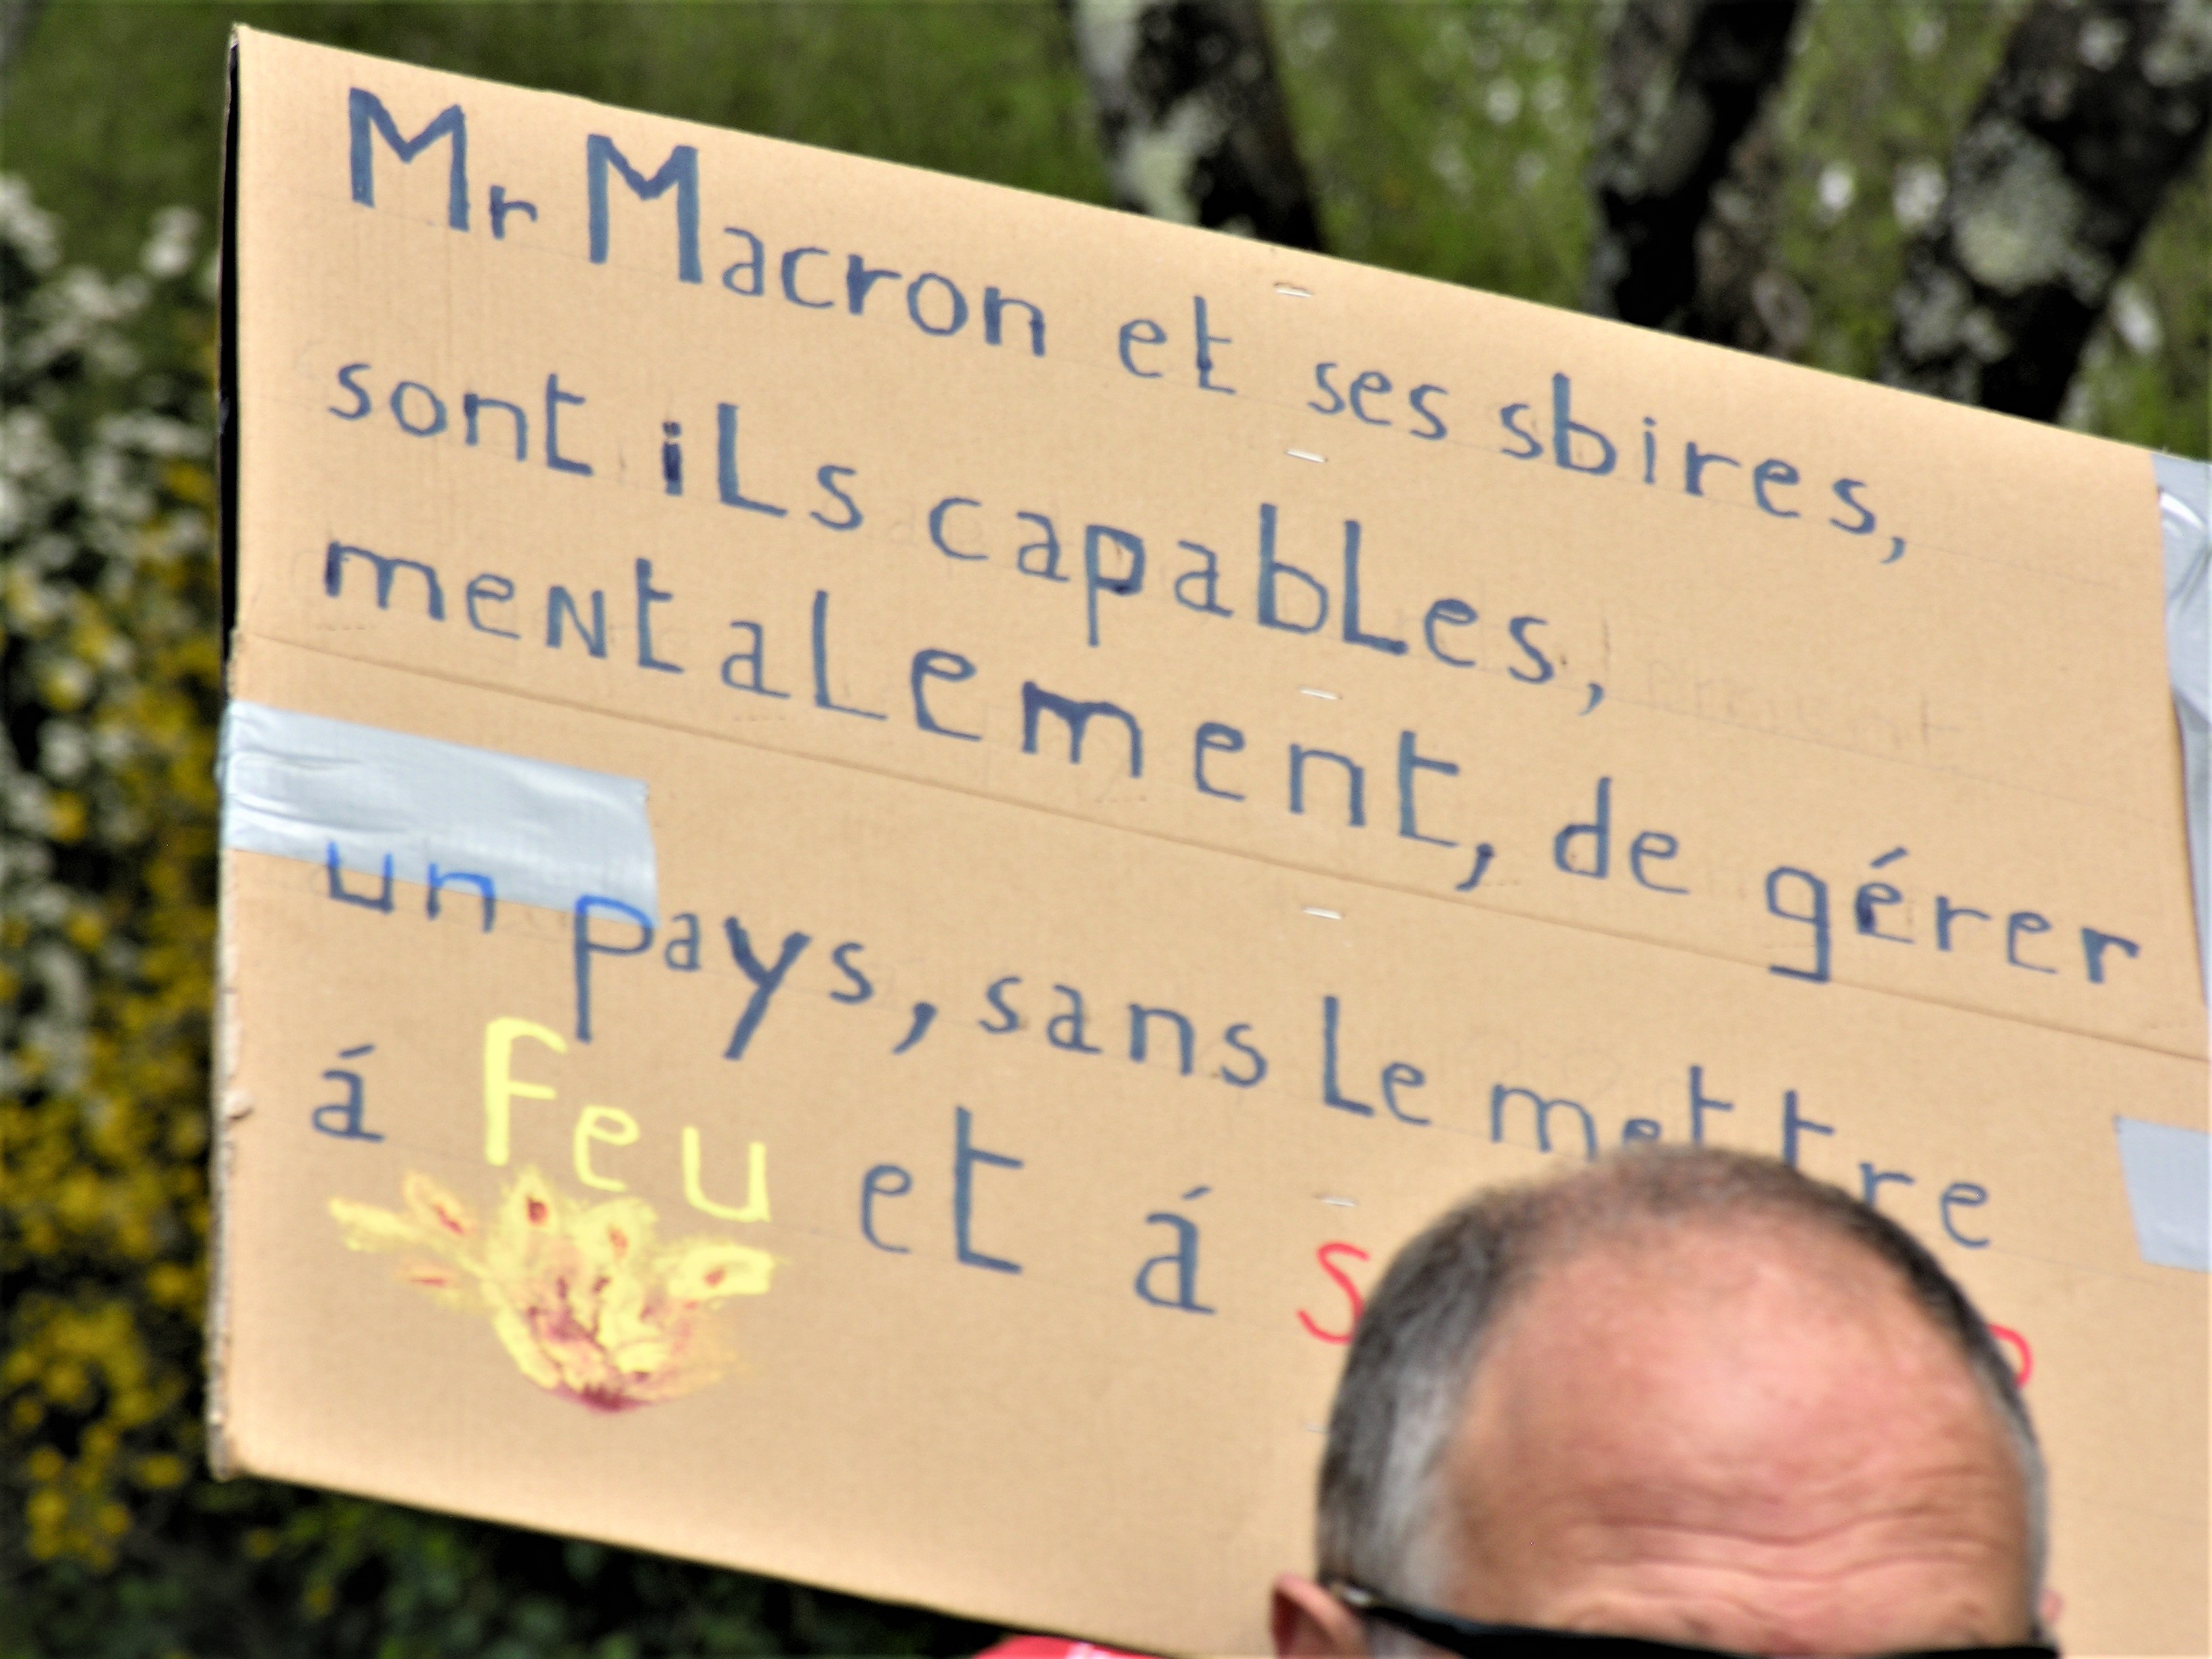 Mr Macron et ses sbires,
sont iLs capabLes,
mentaLement, de gérer
un pays, sans Le mettre
á feu et á